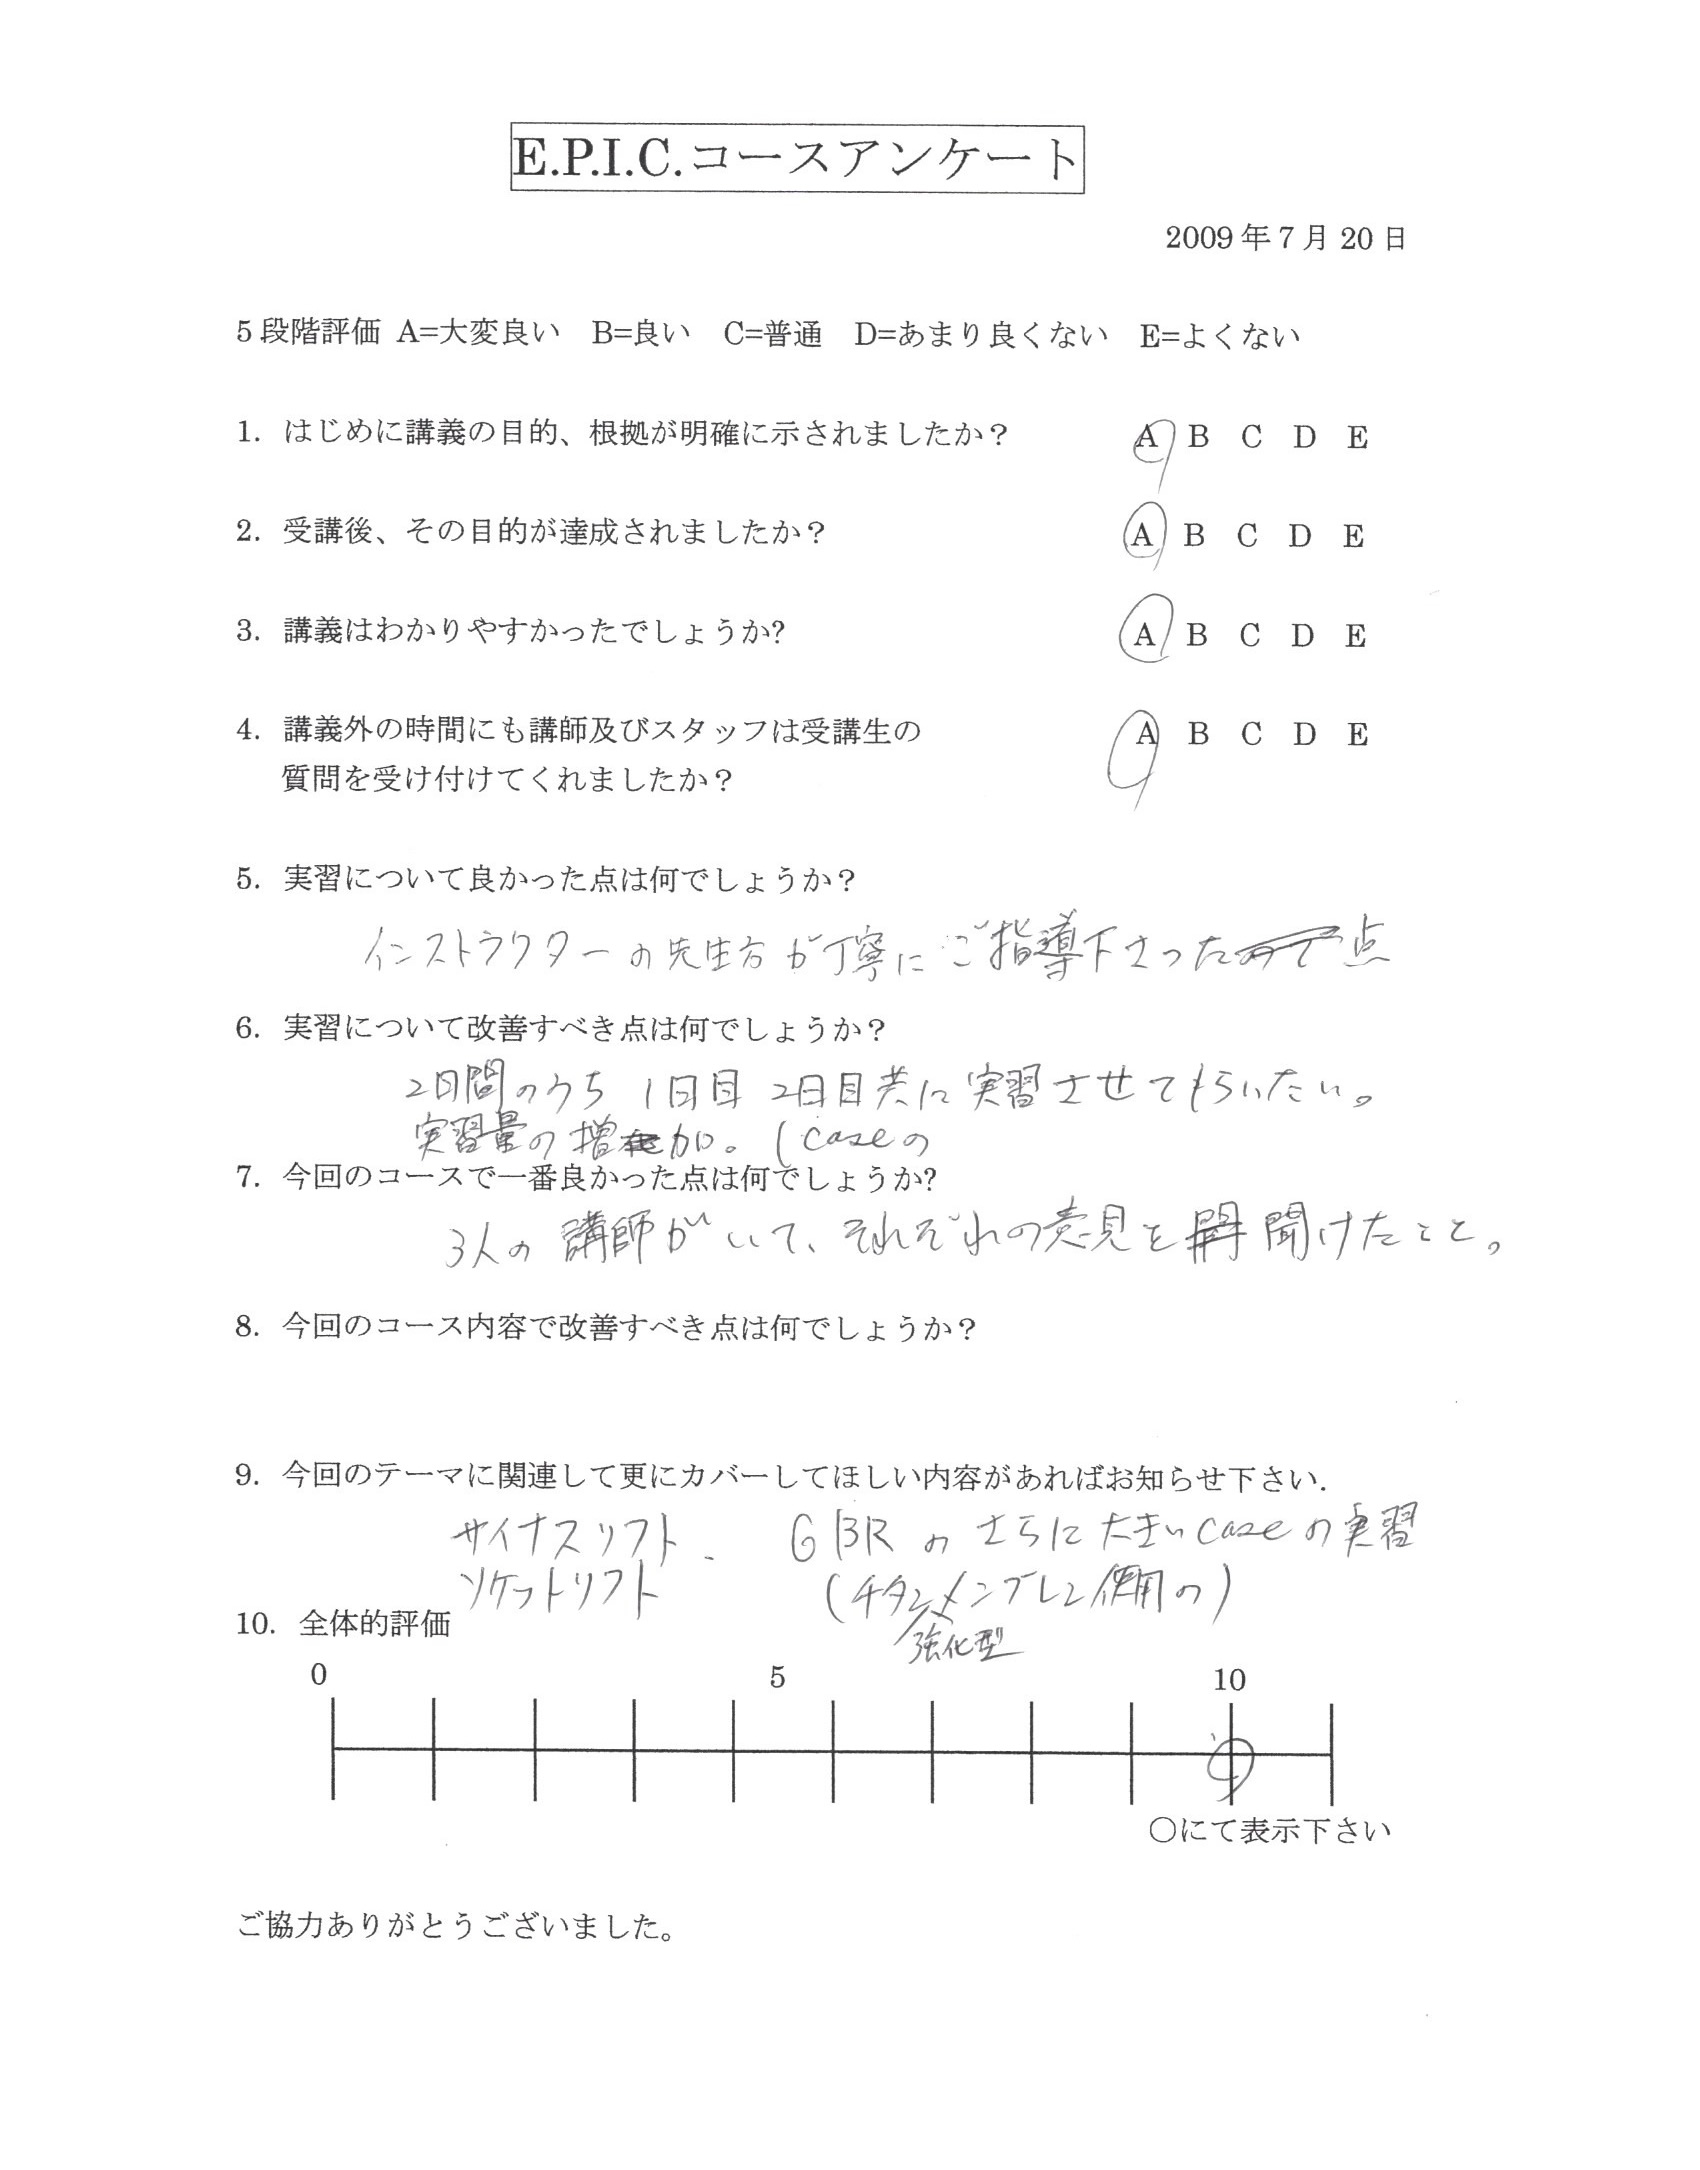 E.P.I.C.コースアンケート
2009年7月20日
5段階評価 A=大変良い B=良い C=普通 D=あまり良くない E=よくない
1. はじめに講義の目的、根拠が明確に示されましたか？ A B C D E
2. 受講後、その目的が達成されましたか？ A B C D E
3. 講義はわかりやすかったでしょうか? A B C D E
4. 講義外の時間にも講師及びスタッフは受講生の A B C D E
質問を受け付けてくれましたか？
5. 実習について良かった点は何でしょうか？
インストラクターの先生方が丁寧にご指導下さった点
6. 実習について改善すべき点は何でしょうか？
2日間のうち 1日目 2日目共に実習させてもらいたい。
実習量の増加。(caseの
7. 今回のコースで一番良かった点は何でしょうか?
3人の講師がいて、それぞれの意見を聞けたこと。
8. 今回のコース内容で改善すべき点は何でしょうか？
9. 今回のテーマに関連して更にカバーしてほしい内容があればお知らせ下さい.
サイナスリフト、 GBRのさらに大きいcaseの実習
ソケットリフト (チタンメンブレン使用の)
強化型
10. 全体的評価
0 5 10
○にて表示下さい
ご協力ありがとうございました。